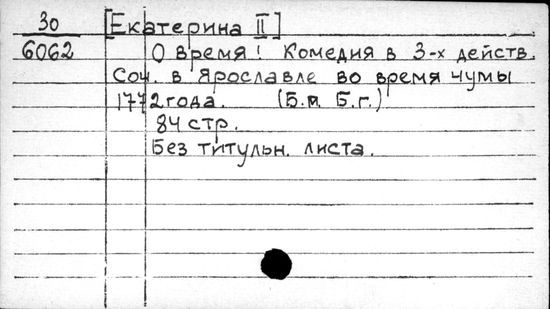 30 [Екатерина II]
6062 О время! Комедия в 3-х действ.
Соч. в Ярославле во время чумы
1772 года. (Б.м. Б.г.)
84 стр.
Без титульн. листа.